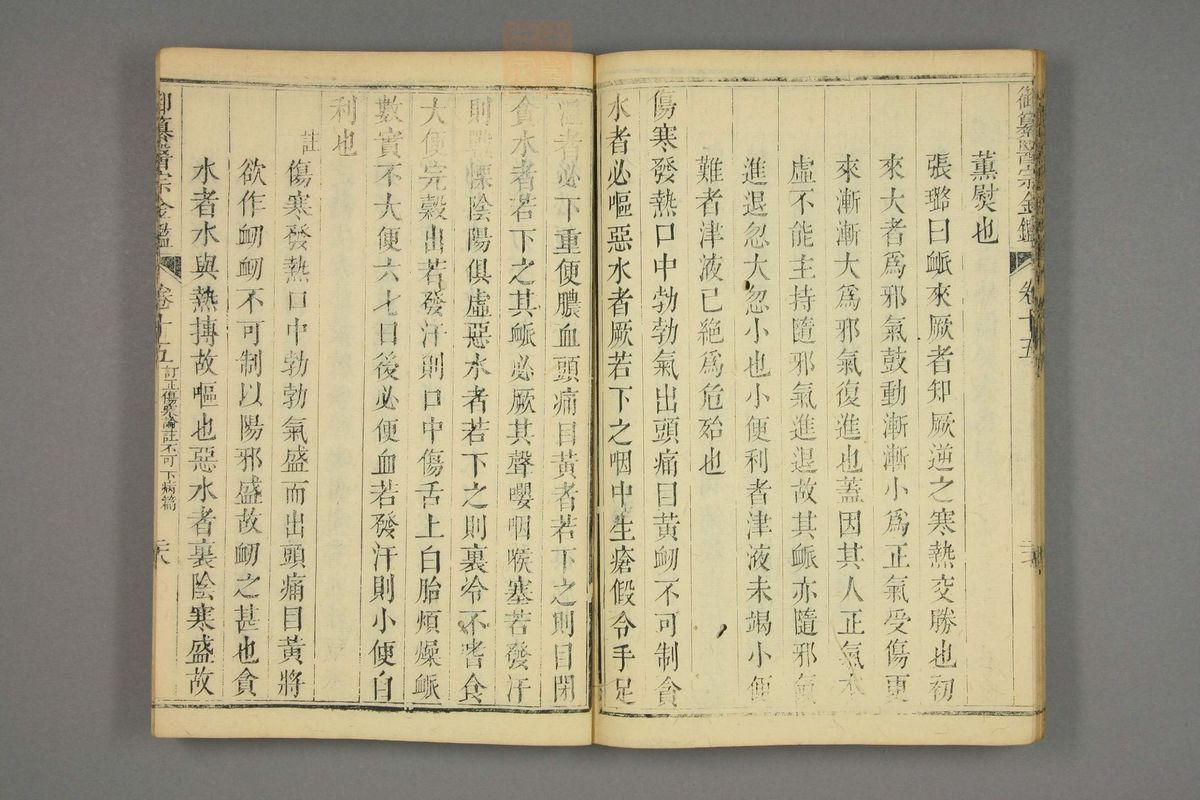 御纂醫宗金鑑 卷十五
薰熨也
張璐曰衇來厥者知厥逆之寒熱交勝也初
來大者爲邪氣鼓動漸漸小爲正氣受傷更
來漸漸大爲邪氣復進也蓋因其人正氣本
虛不能主持隨邪氣進退故其衇亦隨邪氣
進退忽大忽小也小便利者津液未竭小便
難者津液已絶爲危殆也
傷寒發熱口中勃勃氣出頭痛目黃衂不可制貪
水者必嘔惡水者厥若下之咽中生瘡假令手足
溫者必下重便膿血頭痛目黃者若下之則目閉
貪水者若下之其衇必厥其聲嚶咽喉塞若發汗
則戰慄陰陽俱虛惡水者若下之則裏冷不嗜食
大便完穀出若發汗則口中傷舌上白胎煩燥衇
數實不大便六七日後必便血若發汗則小便自
利也
註 傷寒發熱口中勃勃氣盛而出頭痛目黃將
欲作衂衂不可制以陽邪盛故衂之甚也貪
水者水與熱摶故嘔也惡水者裏陰寒盛故
御纂醫宗金鑑 卷十五 訂正傷寒論註不可下病篇